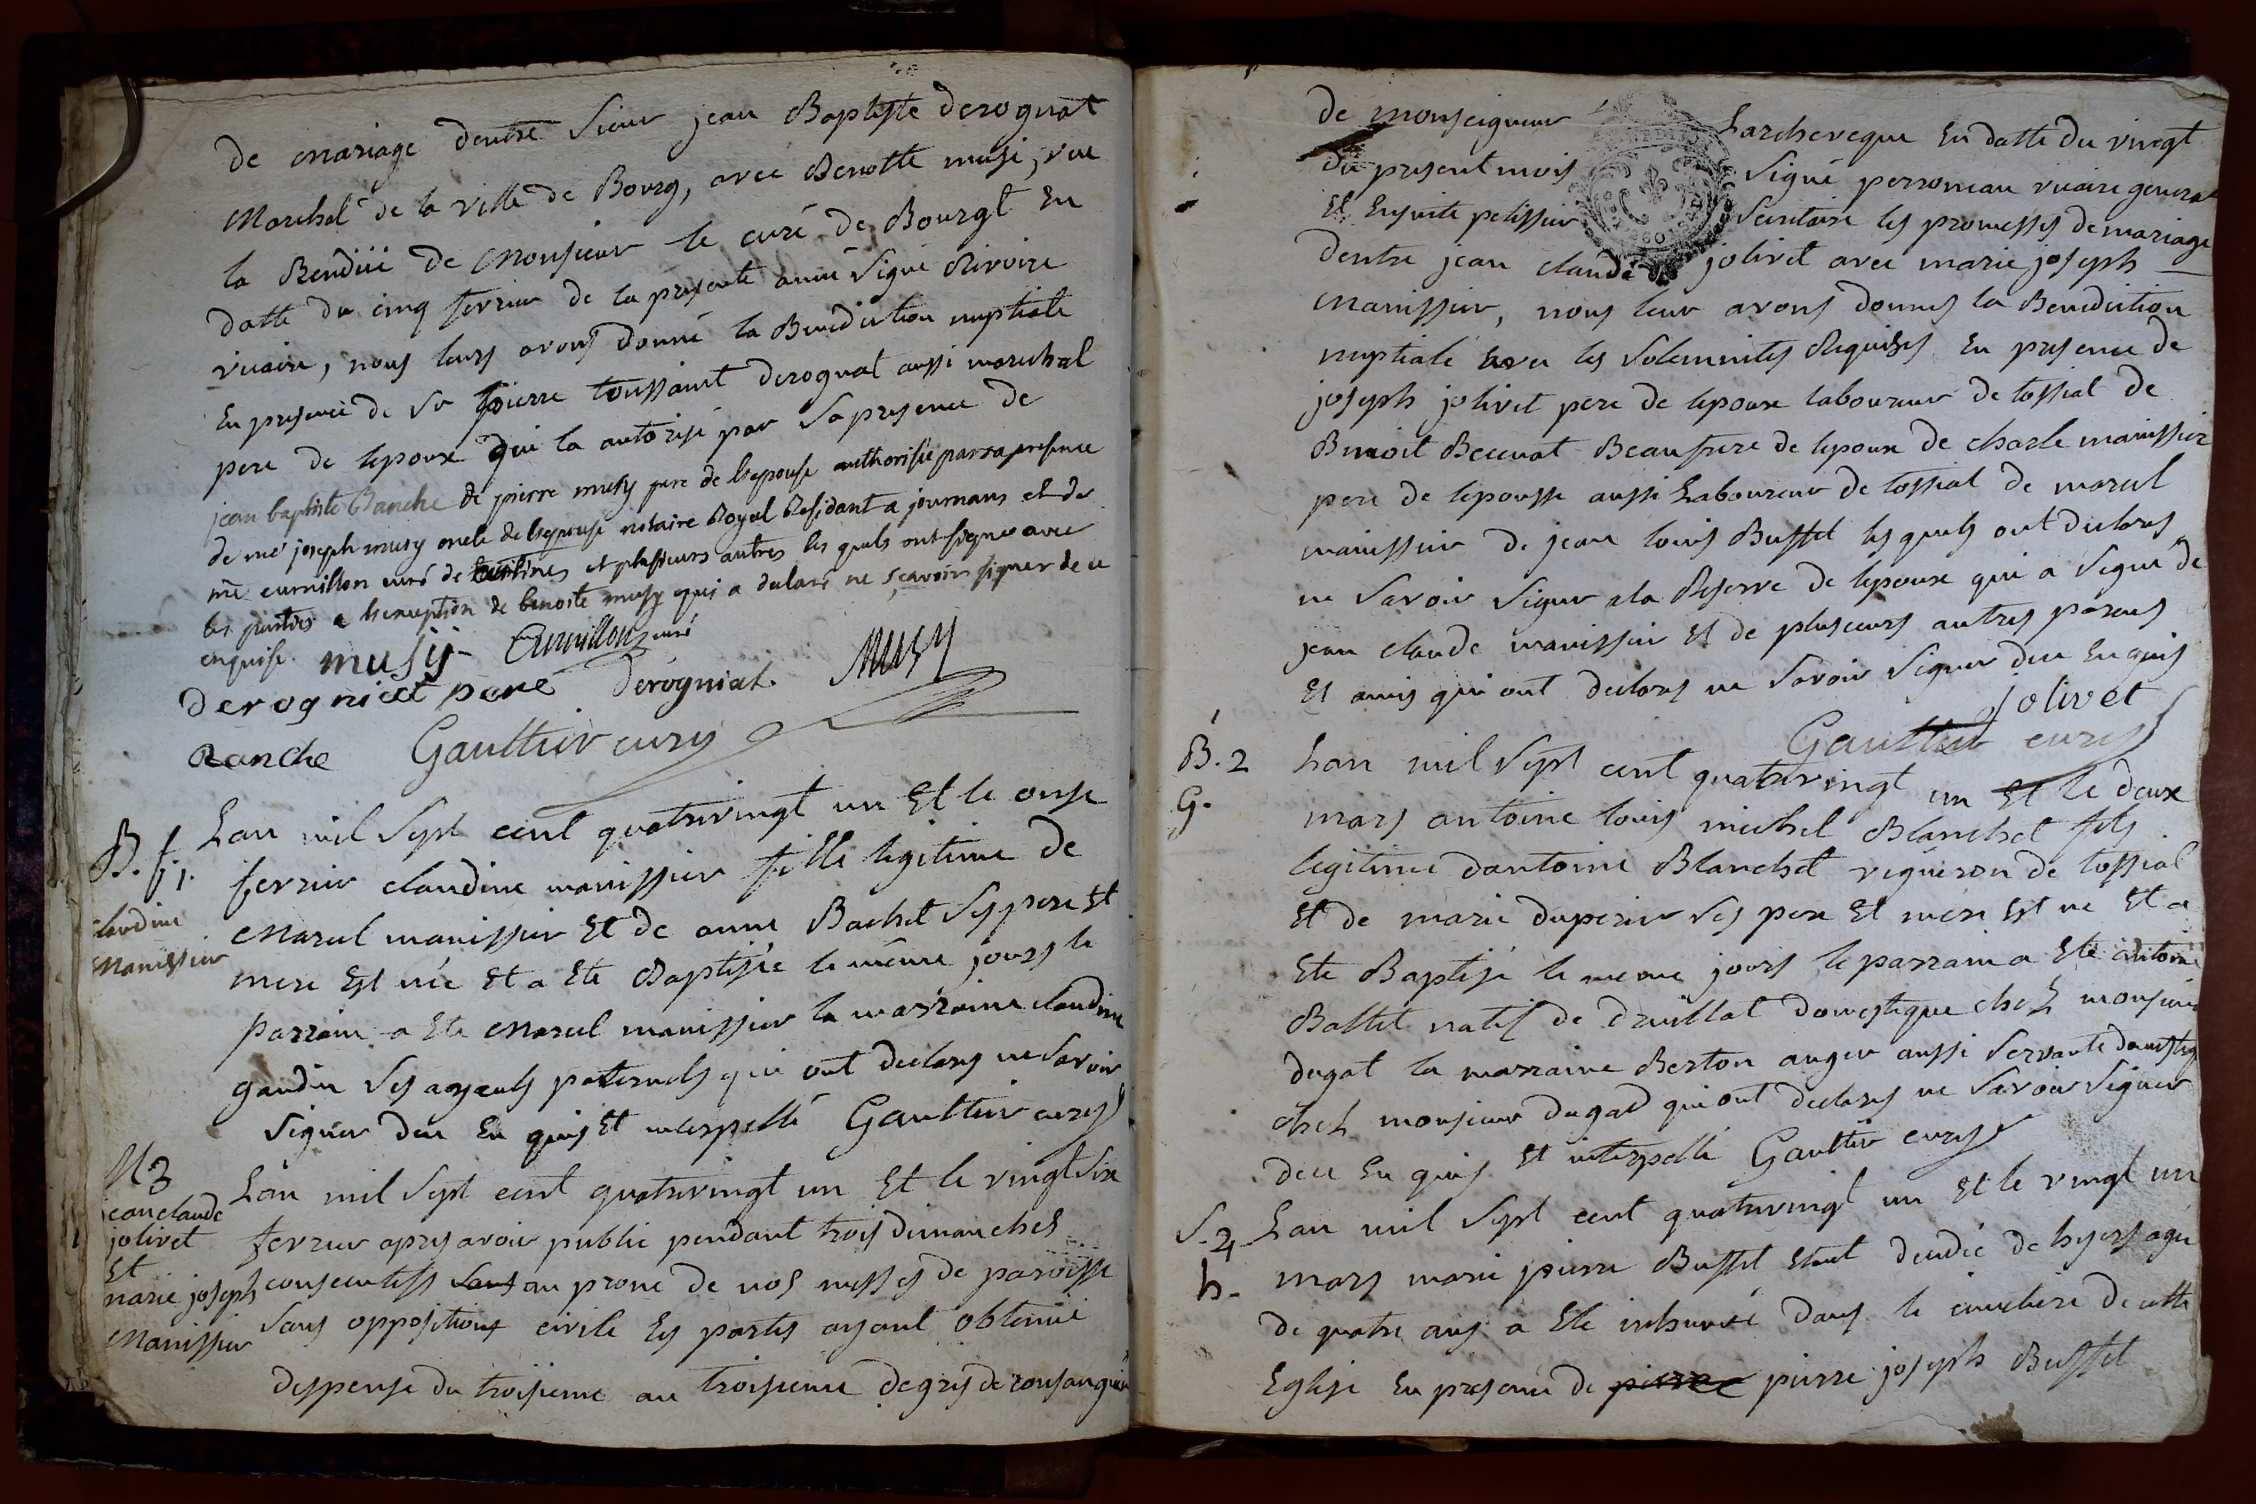 de mariage dentre Sieur jean Baptiste derognat
Marchal de la ville de Bourg, avec Benotte musi, vue
la Rendüe de Monsieur le curé de Bourgt en
datte du cinq fevrier de la presente année Signé Rivoire
vicaire, nous leurs avons donné la Benediction nuptiale
En presence de Sr pierre toussaint derognat aussi marechal
pere de lepoux qui la autorisé par Sa presence de
jean baptiste Banche de pierre musy pere de lepouse authorisée par sa presence
de me joseph musy oncle de lepouse notaire Royal Residant a journans et de
me curnillon curé de et plusieurs autres les quels ont signé avec
les parties a lexception de benoite musy qui a declaré ne scavoir signer de ce
enquise. musy Curnillon curé
derogniat pere derogniat. Musy
Banche Gaulthier curé
B. f. 1.
claudine
Manissier
Lan mil Sept cent quatrevingt un Et le onse
fevrier claudine manissier fille legitime de
Marcel manissier Et de anne Bachet Ses pere Et
mere Est née Et a Eté Baptisée le même jours le
parrain a Ete Marcel manissier la marraine claudine
gaudin Ses ayeuls paternels qui ont declarés ne Savoir
Signer dece En quis Et interpellé Gaulthier curé
M3
jean claude
jolivet
Et
marie joseph
Manissier
Lan mil Sept cent quatrevingt un Et le vingt Six
fevrier apres avoir publié pendant trois dimanches
consecutifs au prone de nos messes de paroisse
Sans oppositions civile les partis ayant obtenüe
dispense du troisieme au troisieme degrés de consanguin
de monseigneur Larcheveque En datte du vingt
du present mois Signé perroneau vicaire general
Et Ensuite pelissier Secretaire les promesses de mariage
dentre jean claude jolivet avec marie joseph
Manissier, nous leur avons donnés la Benediction
nuptiale avec les Solemnités Requises En presence de
joseph jolivet pere de lepoux laboureur de tossiat de
Benoit Beccnat Beaufrere de lepoux de charle manissier
pere de lepousse aussi Laboureur de tossiat de marcel
manissier de jean louis Buffet les quels ont declarés
ne Savoir Signer a la Reserve de lepoux qui a Signé de
jean claude manissier Et de plusieurs autres parens
Et amis qui ont declarés ne Savoir Signer dece Enquis
jolivet
Gaulthier curé
B. 2
G.
Lan mil Sept cent quatrevingt un Et le deux
mars antoine louis michel Blanchet fils
legitime dantoine Blanchet vigneron de tossiat
Et de marie duperier Ses pere Et mere Est né Et a
Eté Baptisé le meme jours le parrain a Eté antoine
Battet natif de druillat domestique chez monsieur
dugat la marraine Berton auger aussi Servante domestique
chez monsieur dugad qui ont declarés ne Savoir Signer
dece En quis Et interpellé Gaulthier curé
S. 4
h.
Lan mil Sept cent quatrevingt un Et le vingt un
mars marie pierre Buffet Etant decedé de hyers agée
de quatre ans a Eté inhumée dans le cimetiere de cette
Eglise En presence de pierre pierre joseph Buffet